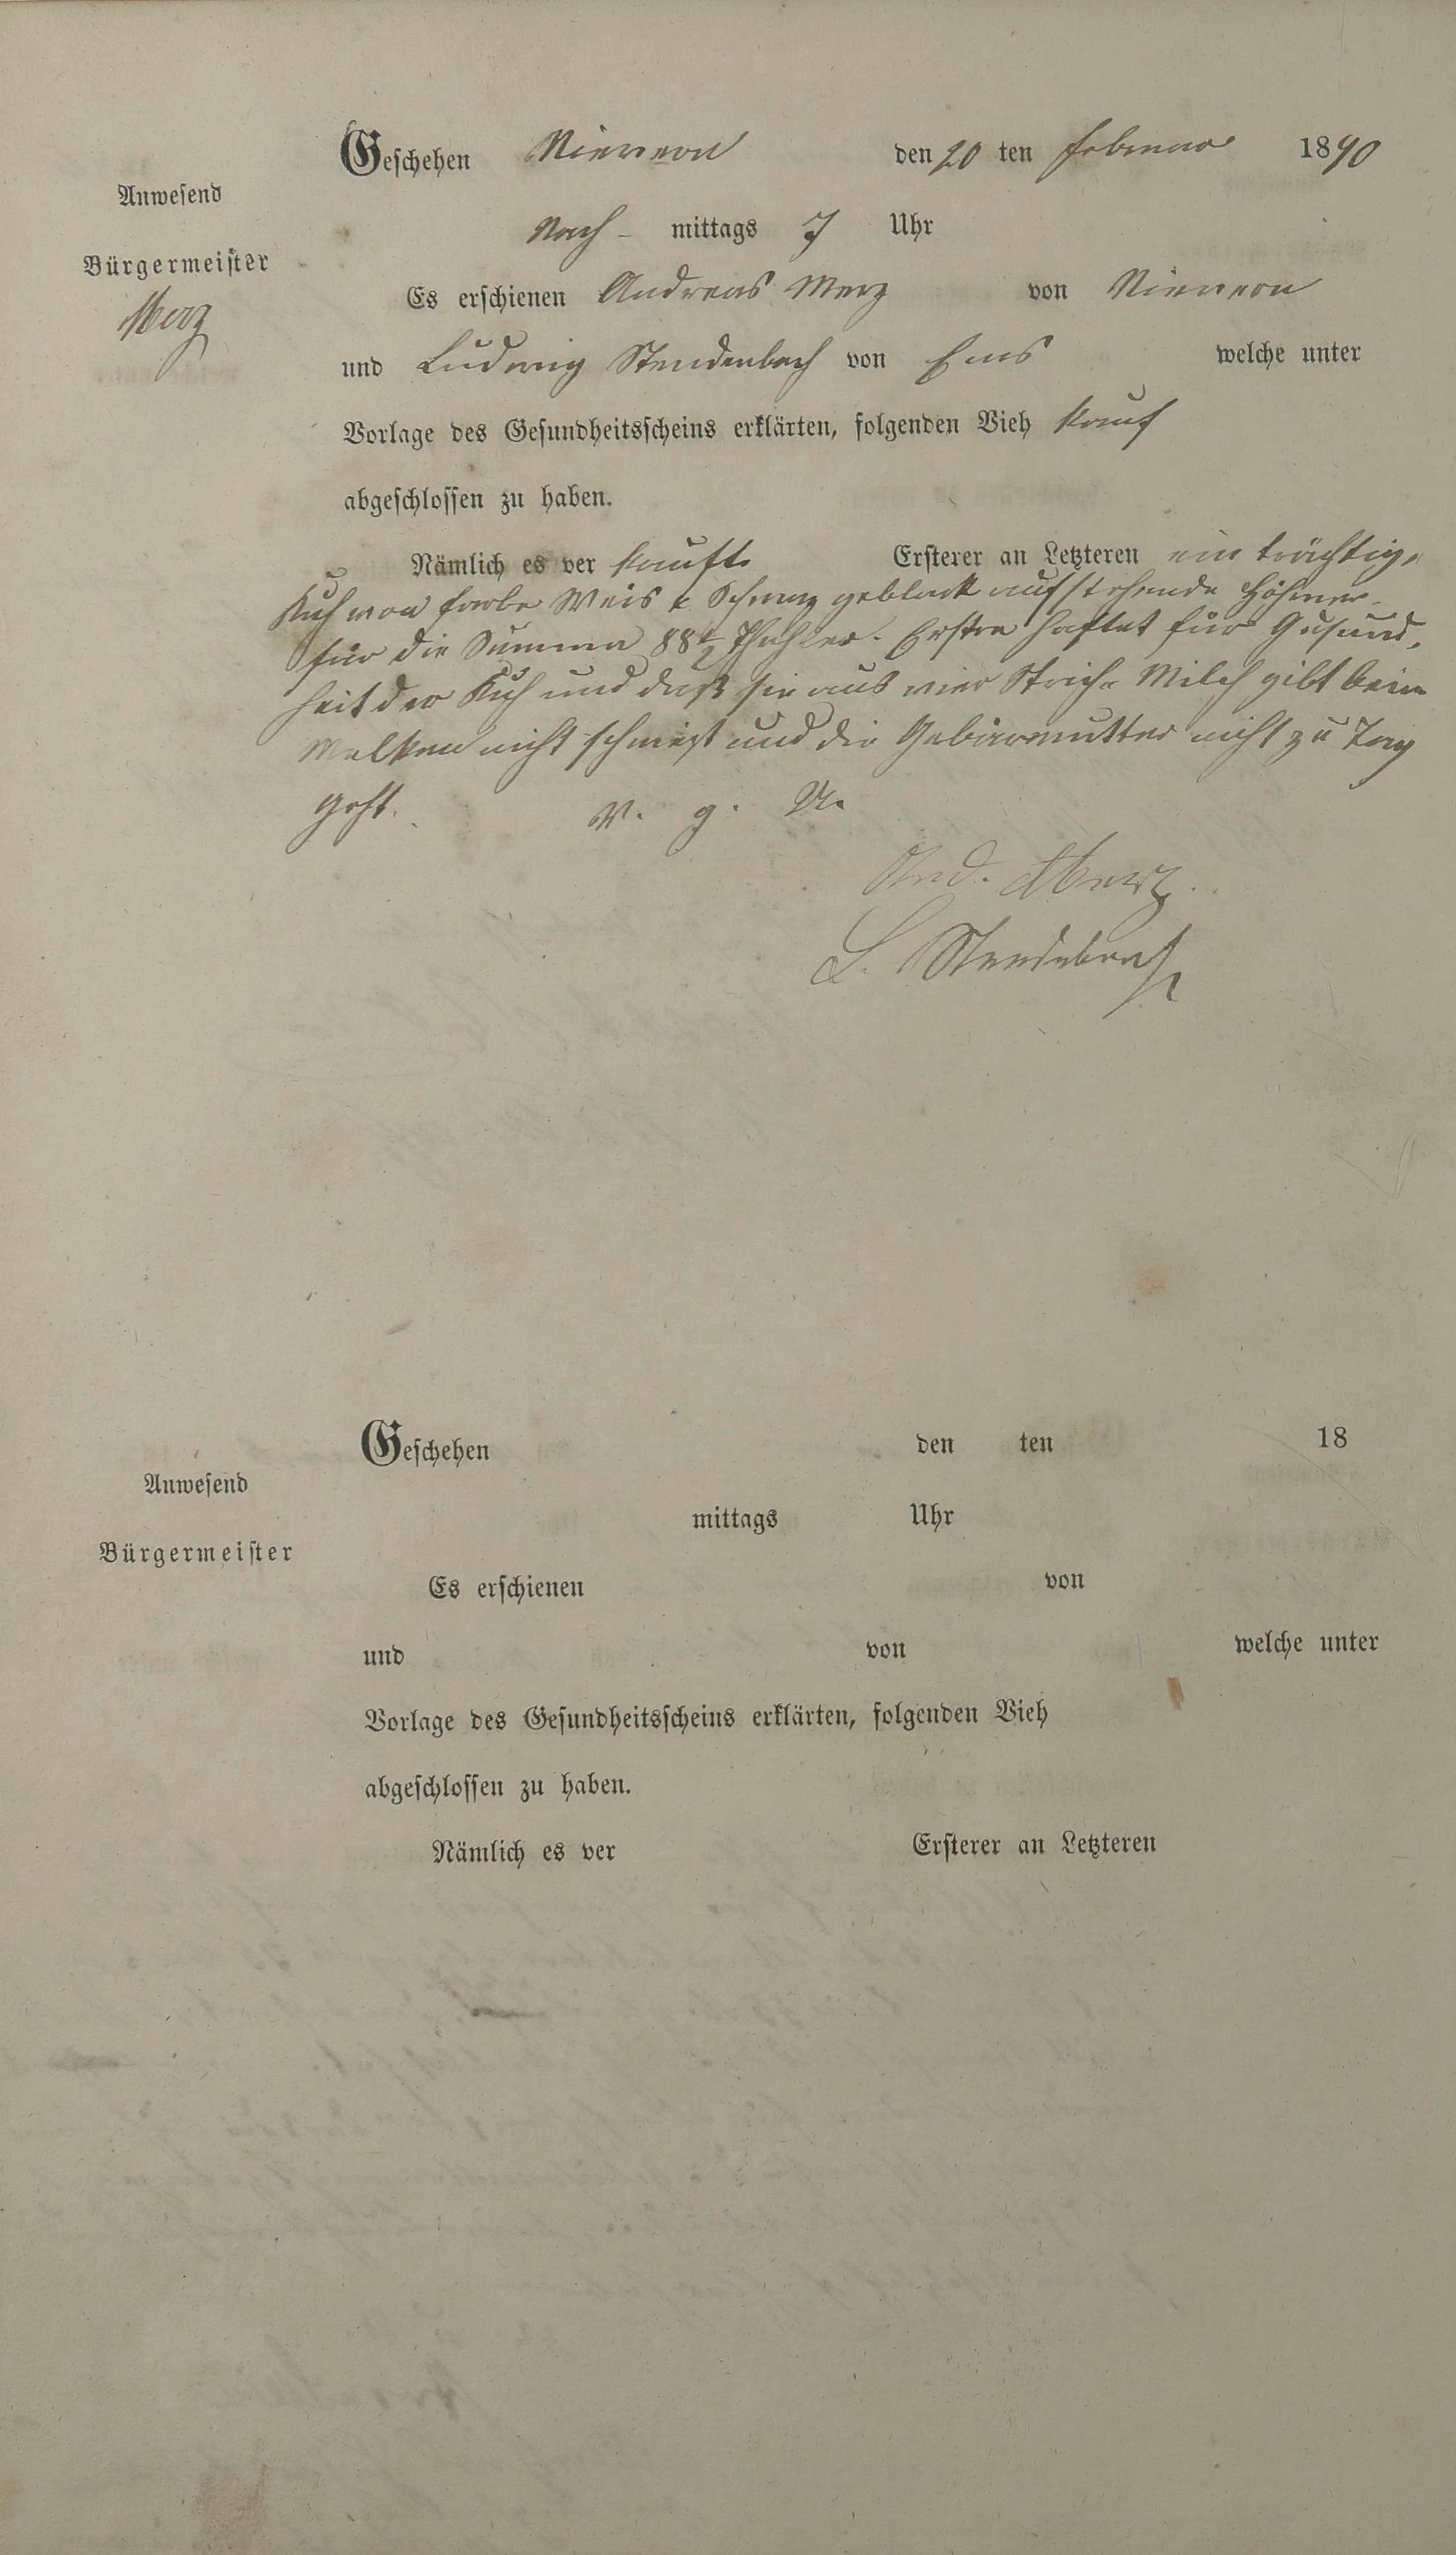 Geschehen Nievern den 20 ten Februar 1890
Anwesend
Nach- mittags 7 Uhr
Bürgermeister
Es erschienen Andreas Merz von Nievern
Merz
und Ludwig Steudenbach von Ems welche unter
Vorlage des Gesundheitsscheins erklärten, folgenden Vieh kauf
abgeschlossen zu haben.
Nämlich es ver kaufte Ersterer an Letzteren ein trächtig,
Kuh von farbe Weis & Schwarz geblackt aufstehende Höhrner
für die Summa 88 1/2 Thahler. Erstre haftet für Gesund,
heit der Kuh und daß sie aus vier Strich Milch gibt beim
Melken nicht schmeißt und die Gebärmutter nicht zu Tag
geht. V. g. U.
And. Merz
L. Steudebach
Geschehen den ten 18
Anwesend
mittags Uhr
Bürgermeister
Es erschienen von
und von welche unter
Vorlage des Gesundheitsscheins erklärten, folgenden Vieh
abgeschlossen zu haben.
Nämlich es ver Ersterer an Letzteren